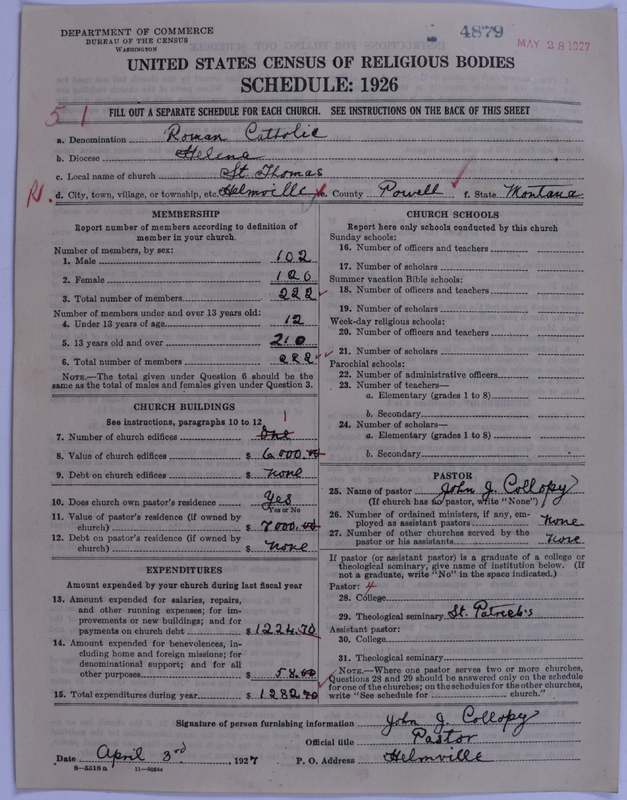 DEPARTMENT OF COMMERCE
BUREAU OF THE CENSUS
WASHINGTON
4879
MAY 28 1927
UNITED STATES CENSUS OF RELIGIOUS BODIES
SCHEDULE: 1926
51
FILL OUT A SEPARATE SCHEDULE FOR EACH CHURCH. SEE INSTRUCTIONS ON THE BACK OF THIS SHEET
a. Denomination Roman Catholic
b. Diocese Helena
c. Local name of church St. Thomas
R. d. City, town, village, or township, etc. Helmville e. County Powell f. State Montana
MEMBERSHIP
Report number of members according to definition of
member in your church.
Number of members, by sex:
1. Male 102
2. Female 120
3. Total number of members 222
Number of members under and over 13 years old:
4. Under 13 years of age 12
5. 13 years old and over 210
6. Total number of members 222
NOTE.—The total given under Question 6 should be
same as the total of males and females given under Question 3.
CHURCH BUILDINGS
See instructions, paragraphs 10 to 12
1
7. Number of church edifices One
8. Value of church edifices $ 6000.00
9. Debt on church edifices $ none
10. Does church own pastor's residence Yes
Yes or No
11. Value of pastor's residence (if owned by
church) $ 7000.00
12. Debt on pastor's residence (if owned by
church) $ none
EXPENDITURES
Amount expended by your church during last fiscal year
13. Amount expended for salaries, repairs,
and other running expenses; for im-
provements or new buildings; and for
payments on church debt $ 1224.70
14. Amount expended for benevolences, in-
cluding home and foreign missions; for
denominational support; and for all
other purposes $ 58.00
15. Total expenditures during year $ 1282.70
CHURCH SCHOOLS
Report here only schools conducted by this church
Sunday schools:
16. Number of officers and teachers
17. Number of scholars
Summer vacation Bible schools:
18. Number of officers and teachers
19. Number of scholars
Week-day religious schools:
20. Number of officers and teachers
21. Number of scholars
Parochial schools:
22. Number of administrative officers
23. Number of teachers—
a. Elementary (grades 1 to 8)
b. Secondary
24. Number of scholars—
a. Elementary (grades 1 to 8)
b. Secondary
PASTOR
25. Name of pastor John J. Collopy
(If church has no pastor, write "None")
26. Number of ordained ministers, if any, em-
ployed as assistant pastors none
27. Number of other churches served by the
pastor or his assistants none
If pastor (or assistant pastor) is a graduate of a college or
theological seminary, give name of institution below. (If
not a graduate, write "No" in the space indicated.)
Pastor: 4
28. College
29. Theological seminary St. Patrick's
Assistant pastor:
30. College
31. Theological seminary
NOTE.—Where one pastor serves two or more churches,
Questions 28 and 29 should be answered only on the schedule
for one of the churches; on the schedules for the other churches,
write "See schedule for church."
Signature of person furnishing information John J. Collopy
Official title Pastor
Date April 3rd, 1927 P. O. Address Helmville
8—5518a